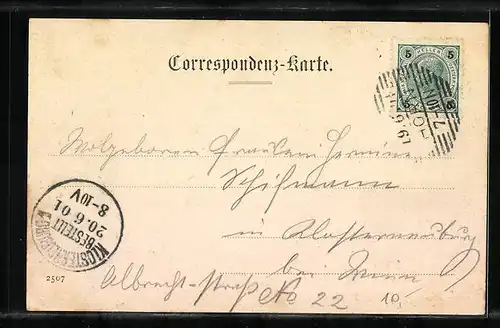 Correspondenz-Karte.
5 HELLER 5
Wolgeboren Fraulein Hermine
Schifmann
in Klosterneuburg
bei Wien
Albrecht-straße No 22
10,
KLOSTERNEUBURG
BESTELLT
20.6.01
8-10V
2507